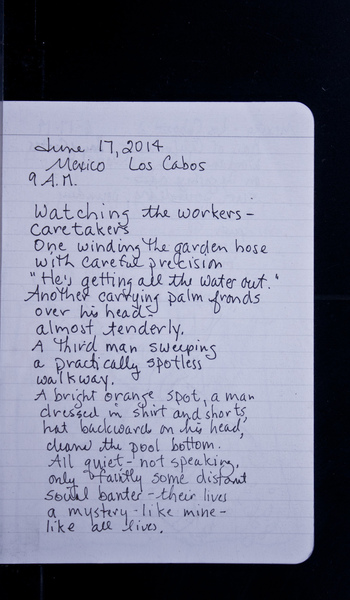 June 17, 2014
Mexico Los Cabos
9 A.M.
Watching the workers -
caretakers
One winding the garden hose
with careful precision
"He's getting all the water out."
Another carrying palm fronds
over his head -
almost tenderly.
A third man sweeping
a practically spotless
walkway.
A bright orange spot, a man
dressed in shirt and shorts,
hat backwards on his head,
the pool bottom.
All quiet - not speaking,
only faintly some distant
social banter - their lives
a mystery - like mine -
like all lives.